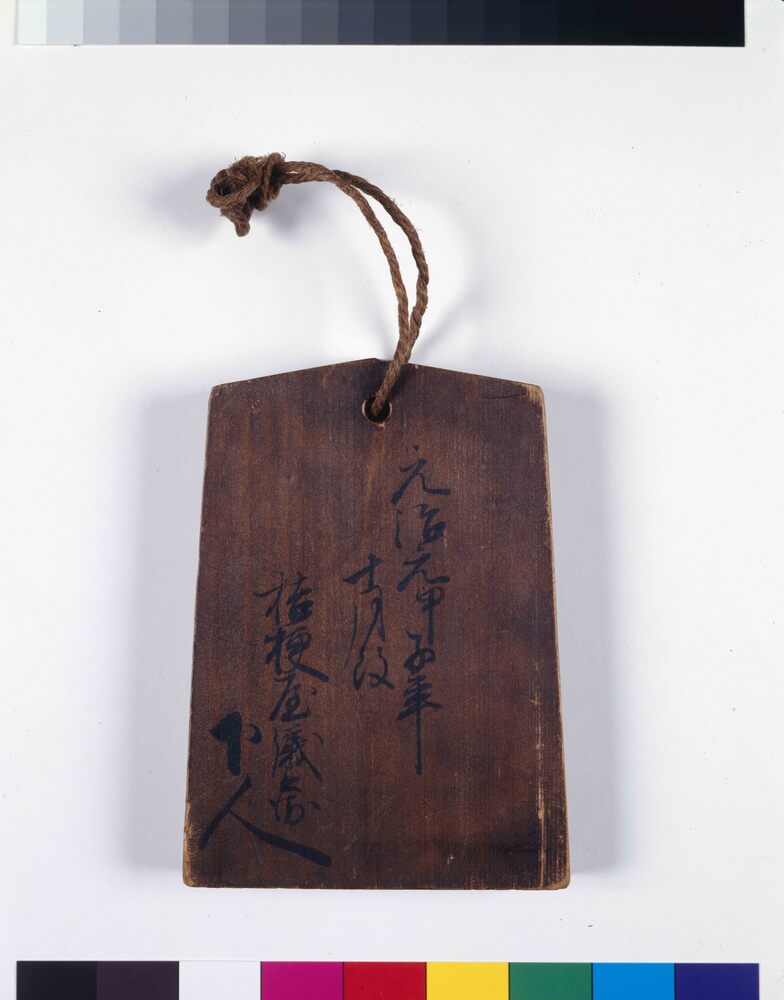 元治元甲子年
十一月改
桔梗屋儀兵衛
下人